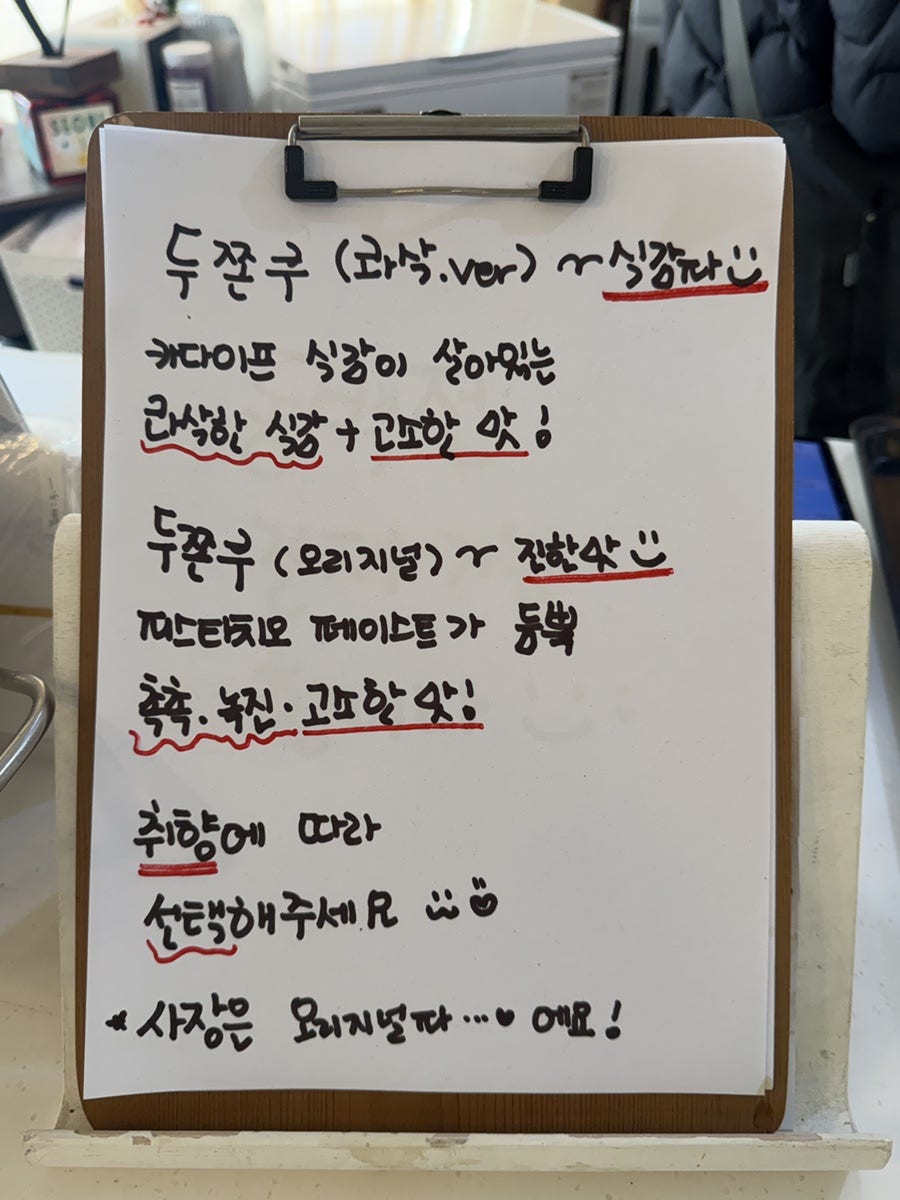 두쫀쿠 (콰삭.ver) ~ 식감파
카다이프 식감이 살아있는
콰삭한 식감 + 고소한 맛!
두쫀쿠 (오리지널) ~ 진한맛
피스타치오 페이스트가 듬뿍
촉촉.녹진.고소한 맛!
취향에 따라
선택해주세요
* 사장은 오리지널파...♥ 에요!